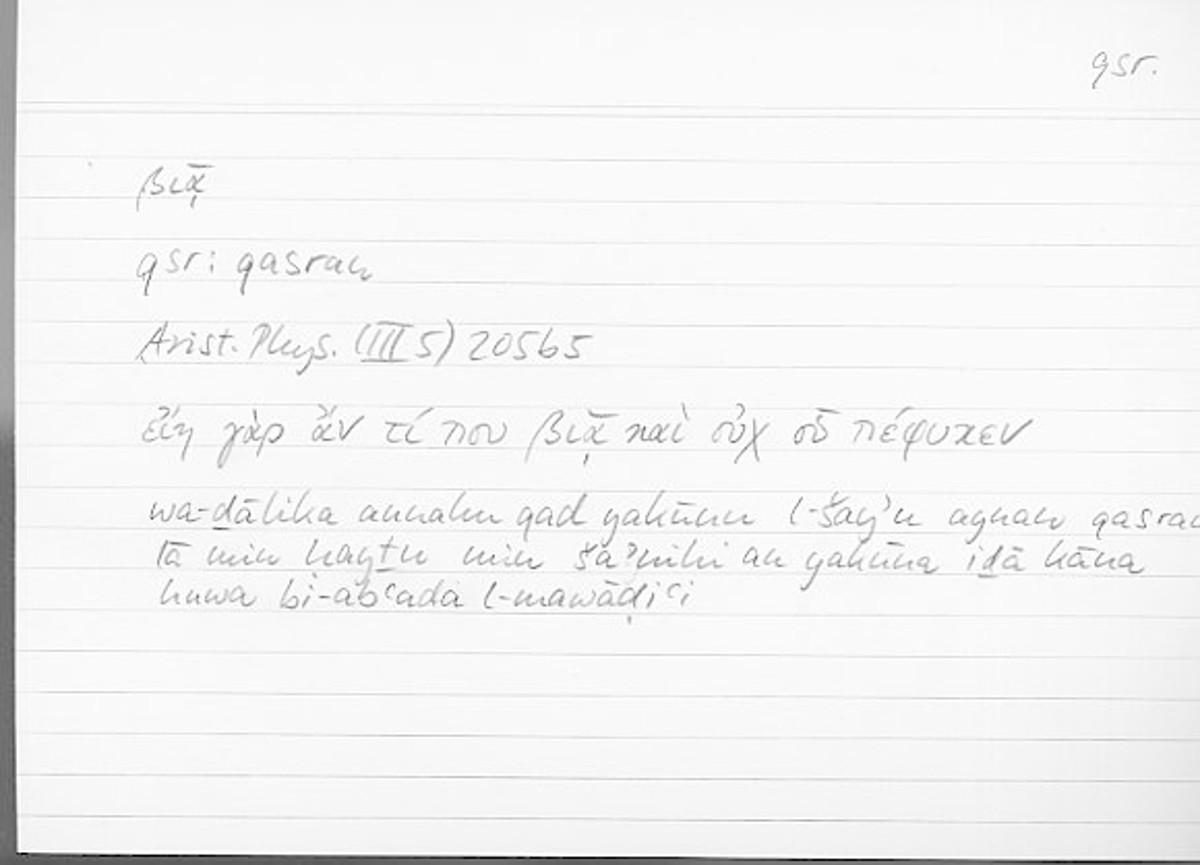 qsr.
βιᾱͅ
qsr: qasran
Arist. Phys. (III 5) 205b5
εἴη γὰρ ἄν τί που βιᾱͅ καὶ οὐχ οὗ πέφυκεν
wa-ḏālika annahu qad yakūnu l-šayʾu aynan qasran
lā min ḥayṯu min šaʾnihi an yakūna iḏā kāna
huwa bi-abʿada l-mawāḍiʿi